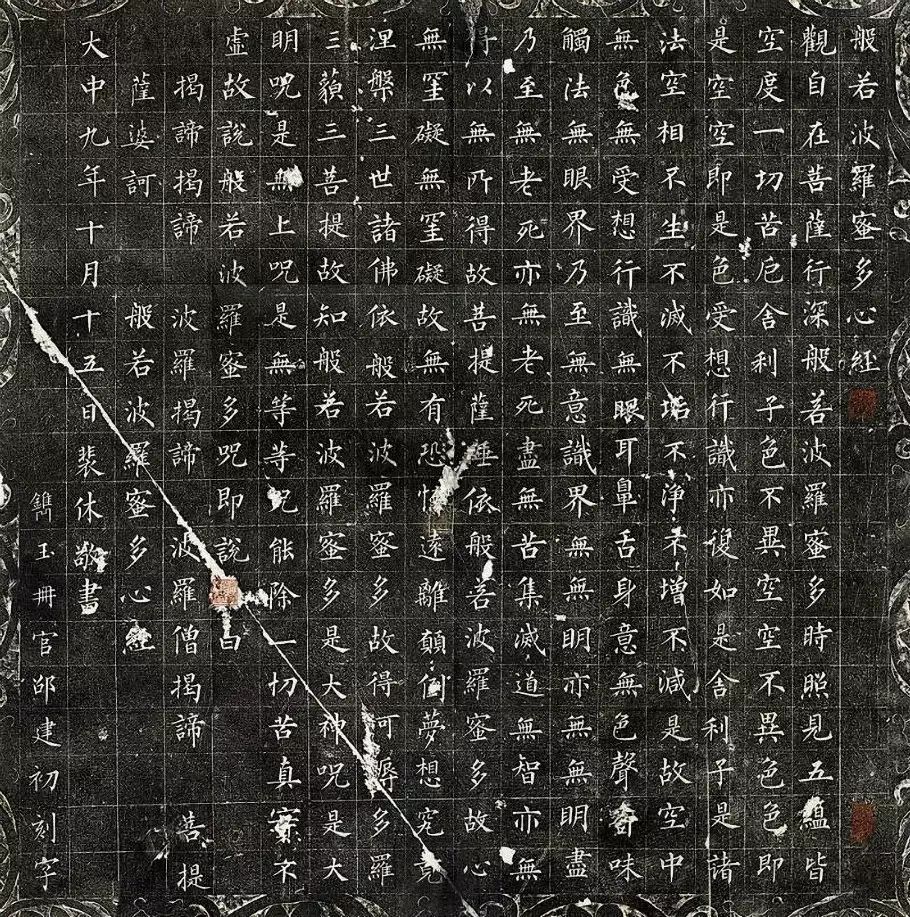 般若波羅蜜多心經
觀自在菩薩行深般若波羅蜜多時照見五蘊皆
空度一切苦厄舍利子色不異空空不異色色即
是空空即是色受想行識亦復如是舍利子是諸
法空相不生不滅不垢不淨不增不減是故空中
無色無受想行識無眼耳鼻舌身意無色聲香味
觸法無眼界乃至無意識界無無明亦無無明盡
乃至無老死亦無老死盡無苦集滅道無智亦無
得以無所得故菩提薩埵依般若波羅蜜多故心
無罣礙無罣礙故無有恐怖遠離顛倒夢想究竟
涅槃三世諸佛依般若波羅蜜多故得阿耨多羅
三藐三菩提故知般若波羅蜜多是大神咒是大
明咒是無上咒是無等等咒能除一切苦真實不
虛故說般若波羅蜜多咒即說曰
揭諦揭諦 波羅揭諦 波羅僧揭諦 菩提
薩婆訶 般若波羅蜜多心經
大中九年十月十五日裴休敬書
鐫玉冊官邵建初刻字